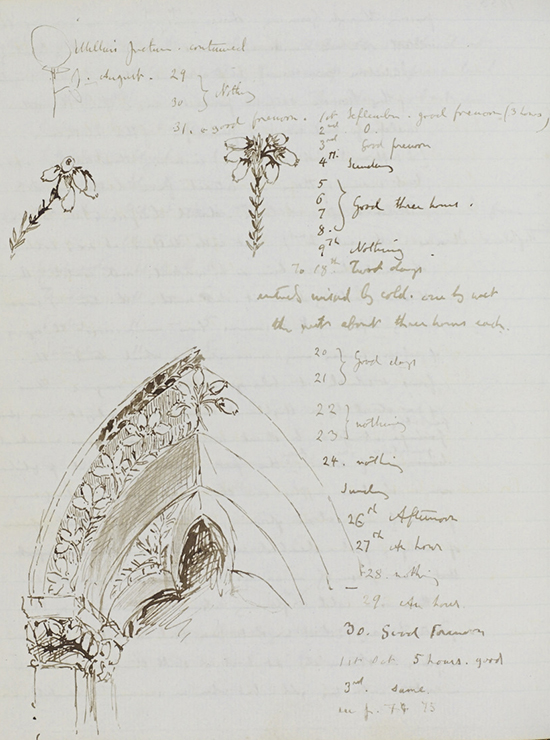 Millais's picture. continued
August. 29
30 } Nothing
31. a good forenoon. 1st September. good forenoon (3 hours,
2nd. 0.
3rd Good forenoon
4th. Sunday
5
6
7 } Good three hours.
8.
9th Nothing
To 18th Two days
entirely missed by cold. one by wet
the rest about three hours each.
20
21 } Good days
22
23 } nothing
24. nothing
Sunday
26th Afternoon
27th An hour
28. nothing
29. An hour.
30. Good Forenoon
1st Oct 5 hours. good
3rd. same.